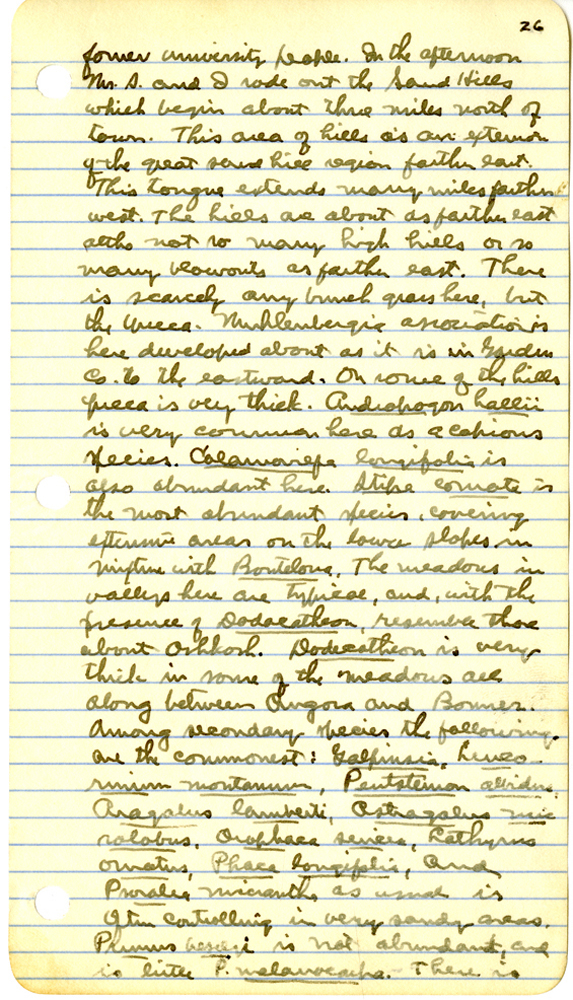 26
former university people. In the afternoon
Mr. S. and I rode out the Sand Hills
which begin about three miles north of
town. This area of hills is an extension
of the great sand hill region farther east.
This tongue extends many miles farther
west. The hills are about as farther east
altho not so many high hills or so
many blowouts as farther east. There
is scarcely any bunch grass here, but
the Yucca-Muhlenbergia association is
here developed about as it is in Garden
Co. to the eastward. On some of the hills
yucca is very thick. Andropogon hallii
is very common here as a copious
species. Calamovilfa longifolia is
also abundant here. Stipa comata is
the most abundant species, covering
extensive areas on the lower slopes in
mixture with Bouteloua. The meadows in
valleys here are typical, and, with the
presence of Dodecatheon, resemble those
about Oshkosh. Dodecatheon is very
thick in some of the meadows all
along between Angora and Bonner.
Among secondary species the following
are the commonest: Galpinsia, Leuco-
crinum montanum, Pentstemon albidus,
Aragalus lamberti, Astragalus mic
rolobus, Orophaca sericea, Lathyrus
ornatus, Phaca longifolia, and
Psoralea micrantha as usual is
often controlling in very sandy areas.
Prunus besseyi is not abundant, and
is little P. melanocarpa. There is